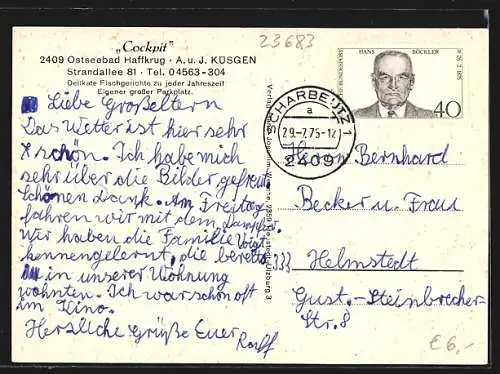 „Cockpit"
2409 Ostseebad Haffkrug · A. u. J. KÜSGEN
Strandallee 81 · Tel. 04563-304
Delikate Fischgerichte zu jeder Jahreszeit
Eigener großer Parkplatz.
23683
Liebe Großeltern
Das Wetter ist hier sehr
schön. Ich habe mich
sehr über die Bilder gefreut.
Schönen Dank. Am Freitag
fahren wir mit dem Dampfer.
Wir haben die Familie Voigt
kennengelernt, die bereits
in unserer Wohnung
wohnten. Ich war schon oft
im Kino.
Herzliche Grüße Euer
Rolf
SCHARBEUTZ 1
a
29.-7.75-12
2409
DEUTSCHE BUNDESPOST
HANS BÖCKLER
* 26. 2. 1875
40
Herrn Bernhard
Becker u. Frau
333 Helmstedt
Gust.-Steinbrecher-
Str. 8
€ 6,-